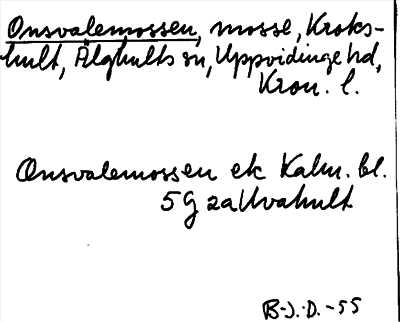 Onsvalemossen, mosse, Kroks-
hult, Älghults sn, Uppvidinge hd,
Kron. l.
Onsvalemossen ek Kalm. bl.
5 G za Uvahult
B-J. D. -55